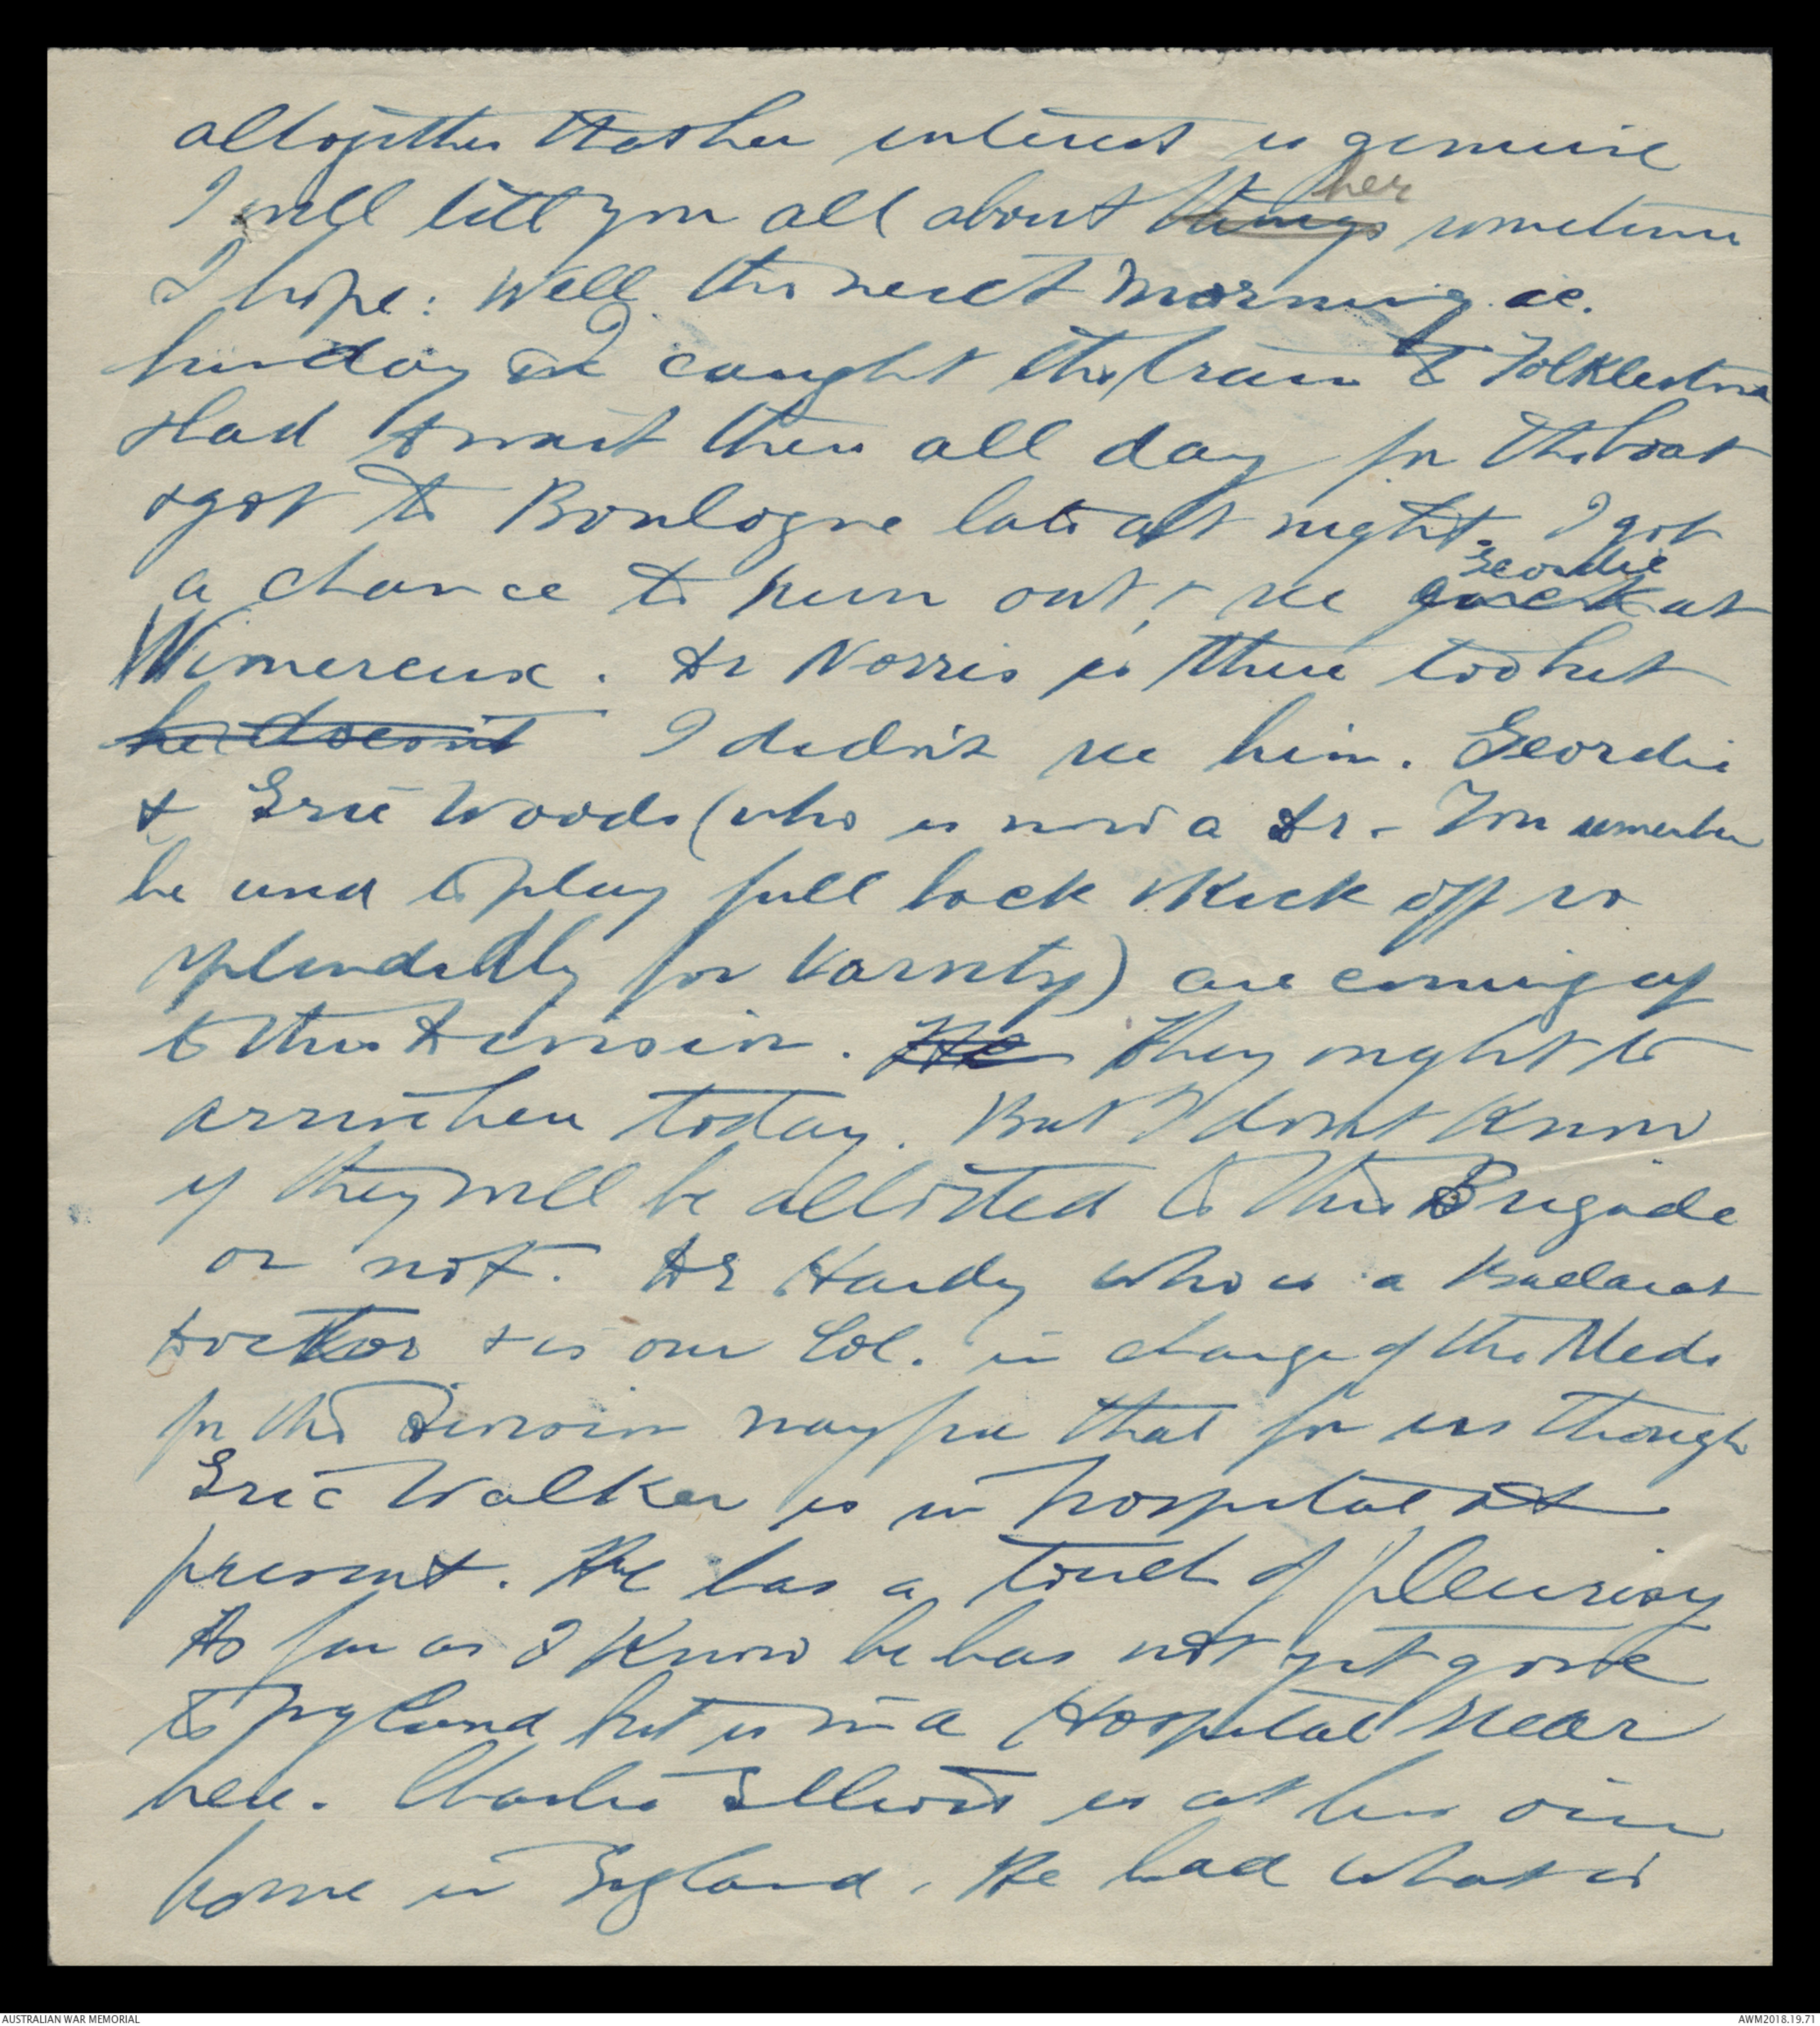 altogether that her interest is genuine
I will tell you all about things her sometime
I hope: Well the next morning ie.
Sunday I caught the train to Folklestone
Had to wait there all day for the boat
& got to Boulogne late at night. I got
a chance to run out & see Geordie at
Wimereux. Dr Norris is there too but
he doesn't I didn't see him. Geordie
& Eric Woods (who is now a Dr - You remember
he used to play full back & kick off so
splendidly for Varsity) are coming up
to this Division. He They ought to
arrive here today. But I don't know
if they will be allotted to this Brigade
or not. Dr Hardy who is a Ballarat
Doctor & is our Col. in charge of the Meds
for the Division may fix that for us though
Eric Walker is in hospital at
present. He has a touch of pleurisy
As far as I know he has not yet gone
to England but is in a Hospital near
here. Charlie Elliott is at his own
home in England. He had what is
AUSTRALIAN WAR MEMORIAL
AWM2018.19.71